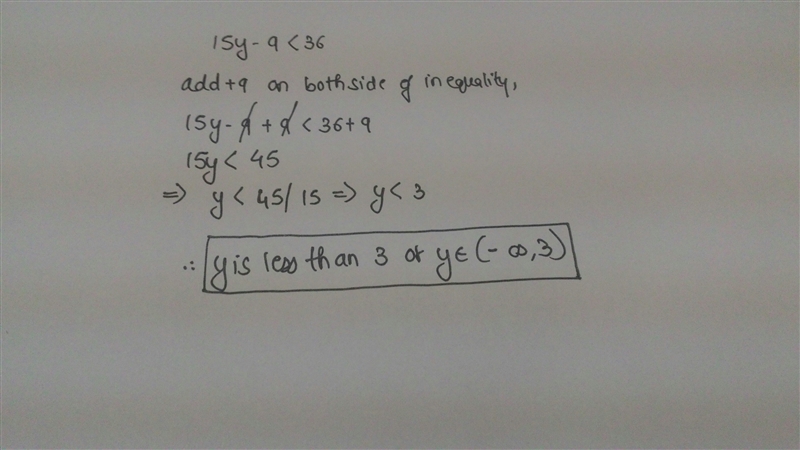 15y - 9 < 36
add +9 on bothside of inequality,
15y - 9 + 9 < 36 + 9
15y < 45
⇒ y < 45/15 ⇒ y < 3
∴ y is less than 3 or y ∈ (-∞, 3)